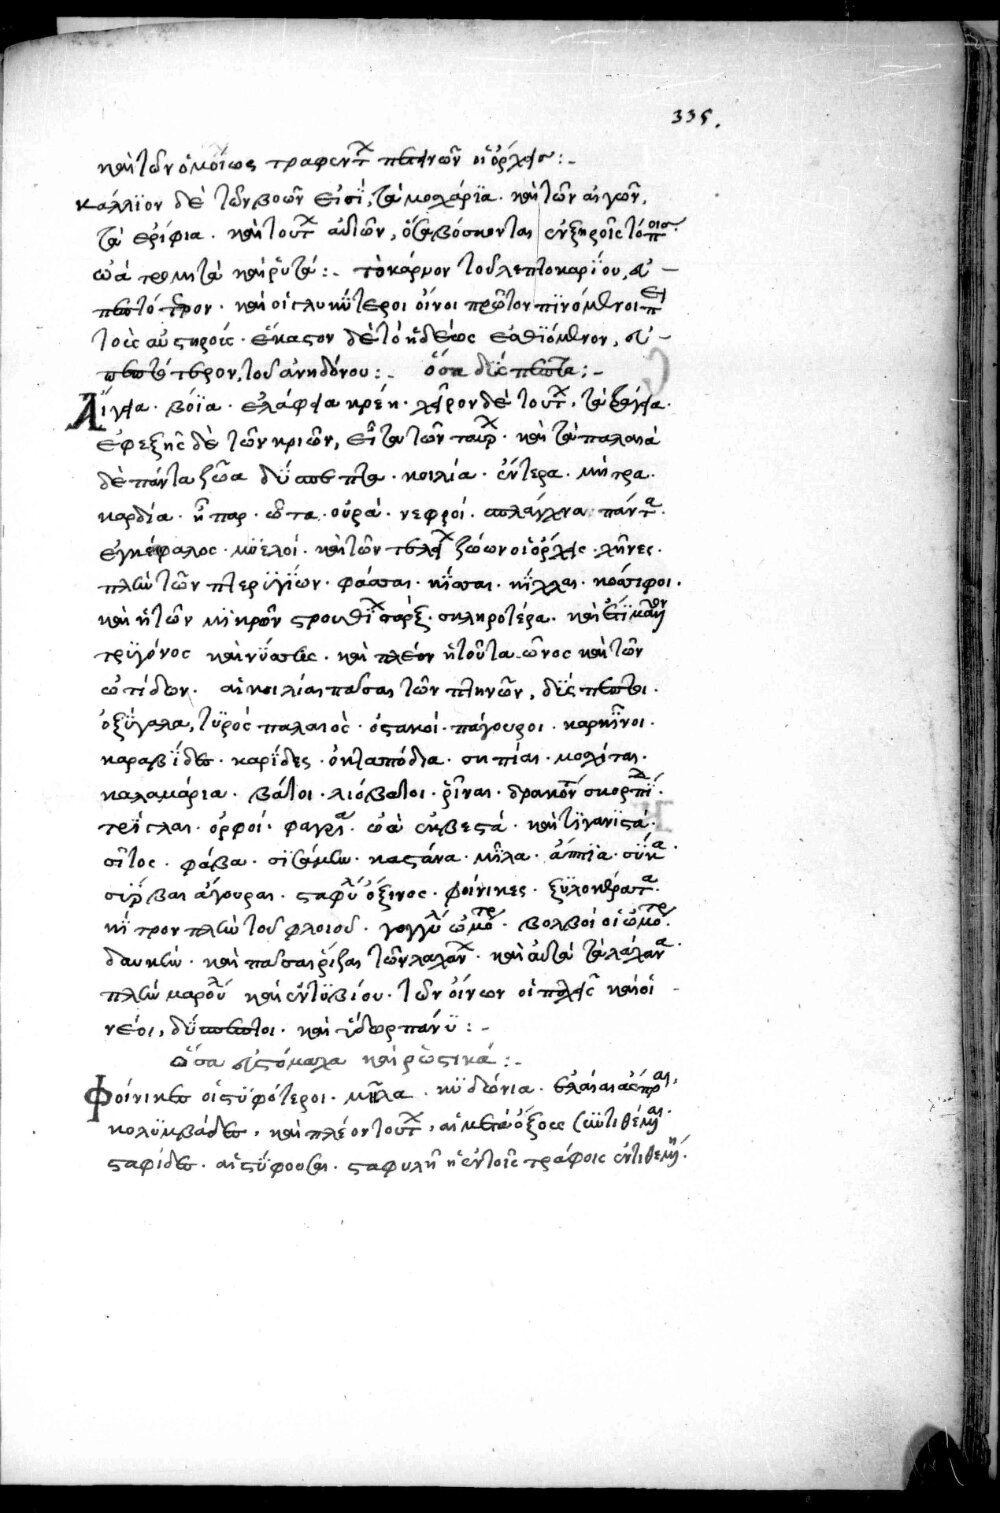 335.
καὶ τῶν ὁμοίως τραφέντ πετεινῶν οἱ ὄρχεις :-
κάλλιον δὲ τῶν βοῶν εἰσὶ, τὰ μοσχάρια · καὶ τῶν αἰγῶν,
τὰ ἐρίφια · καὶ τούτ αὐτῶν, ὅσα βόσκονται ἐν ξηροῖς τόποις ·
ὠὰ τρομητὰ καὶ ῥυτά :- τὸ κάρυον τοῦ λεπτοκαρίου, εὐ-
πεπτότερον · καὶ οἱ γλυκύτεροι οἶνοι πρῶτον πινόμενοι ἐπὶ
τοῖς αὐστηροῖς · ἕκαστον δὲ τὸ ἡδέως ἐσθιόμενον, εὐ-
πεπτότερον, τοῦ ἀνηδόνου :- ὅσα δύσπεπτα :-
Αἴγεια · βόϊα · ἐλάφεια κρέη · χεῖρον δὲ τούτ · τὰ τράγεια ·
ἐφεξῆς δὲ τῶν κριῶν, εἶτα τῶν ταύρ · καὶ τὰ παλαιὰ
δὲ πάντα ζῶα δύσπεπτα · κοιλία · ἔντερα · μήτρα ·
καρδία · ἧπαρ · ὦτα · οὐρά · νεφροί · σπλάγχνα πάντα ·
ἐγκέφαλος · μυελοί · καὶ τῶν τελεί ζώων οἱ ὄρχεις · χῆνες ·
πλὴν τῶν πτερυγίων · φάσσαι · νῆσσαι · κίχλαι · κόσσιφοι ·
καὶ ἡ τῶν μικρῶν στρουθί σάρξ · σκληροτέρα · καὶ ἔτι μᾶλλον
τρυγόνος καὶ νήσσης · καὶ πλέον ἡ τοῦ ταῶνος καὶ τῶν
ὠτίδων · αἱ κοιλίαι πᾶσαι τῶν πτηνῶν, δύσπεπτοι ·
ὀξύγαλα, τυρὸς παλαιὸς · ὀστακοί · πάγουροι · καρκῖνοι ·
καραβίδες · καρίδες · ὀκταπόδια · σηπίαι · μολίται ·
καλαμάρια · βάτοι · λιόβατοι · ῥῖναι · δρακόντ σκορπί ·
τρίγλαι · ὀρφοί · φαγρία · ὠὰ ἐκζεστά · καὶ τηγανιστά ·
σῖτος · φάβα · σισάμην · κάστανα · μῆλα · ἄπια · σῦκα ·
σύρβαι ἄγουραι · σταφυλ ὄξινος · φοίνικες · ξυλοκέρατα ·
κίτρον πλὴν τοῦ φλοιοῦ · γογγύλ ὠμότρ · βολβοὶ οἱ ὠμότρ ·
δαυκὴν · καὶ πᾶσαι ῥίζαι τῶν λαχάν · καὶ αὐτὰ τὰ λάχανα ·
πλὴν μαρούλ καὶ ἐντυβίου · τῶν οἴνων οἱ παχεῖς καὶ οἱ
νέοι, δύσπεπτοι · καὶ ὕδωρ πάνυ :-
ὅσα εὐστόμαχα καὶ ῥωστικά :-
Φοίνικες οἱ στυφότεροι · μῆλα · κυδώνια · ἐλαῖαι ἄσπραι,
κολυμβάδες · καὶ πλέον τούτ, αἱ μετὰ ὄξους συντιθέμεναι ·
σταφίδες · αἱ στύφουσαι · σταφυλὴ ἡ ἐν τοῖς τράφοις ἐντιθεμένη ·